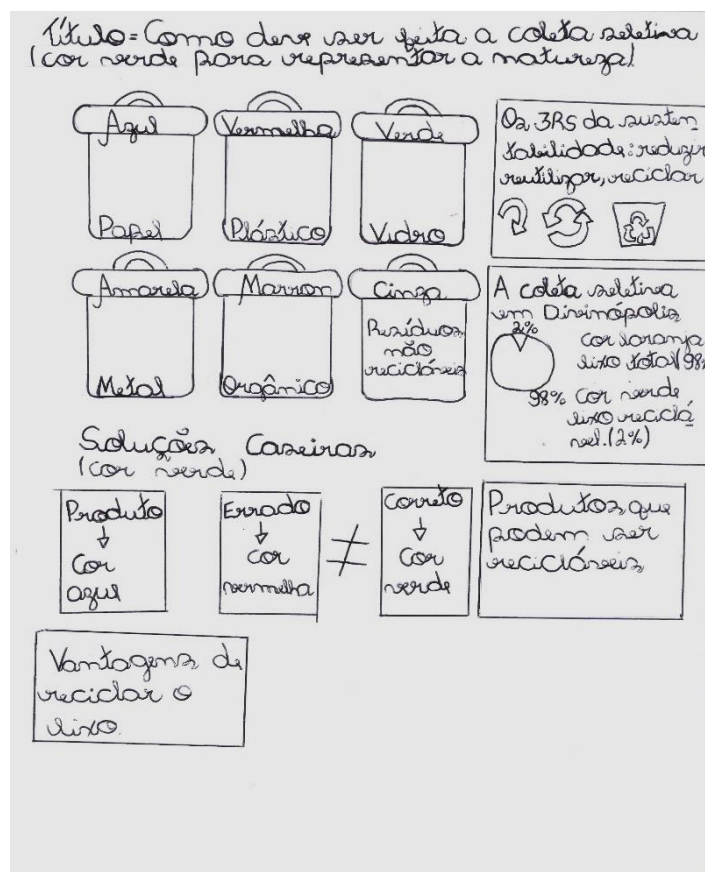 Título = Como deve ser feita a coleta seletiva
(cor verde para representar a natureza)
Azul
Papel
Vermelha
Plástico
Verde
Vidro
Os 3RS da susten
tabilidade: reduzir
reutilizar, reciclar
Amarela
Metal
Marron
Orgânico
Cinza
Resíduos
não
recicláveis
A coleta seletiva
em Divinópolis
2%
cor laranja
lixo total (98%
98% cor verde
lixo reciclá
vel. (2%)
Soluções Caseiras
(cor verde)
Produto
↓
Cor
azul
Errado
↓
cor
vermelha
≠
Correto
↓
Cor
verde
Produtos que
podem ser
recicláveis
Vantagens de
reciclar o
lixo.